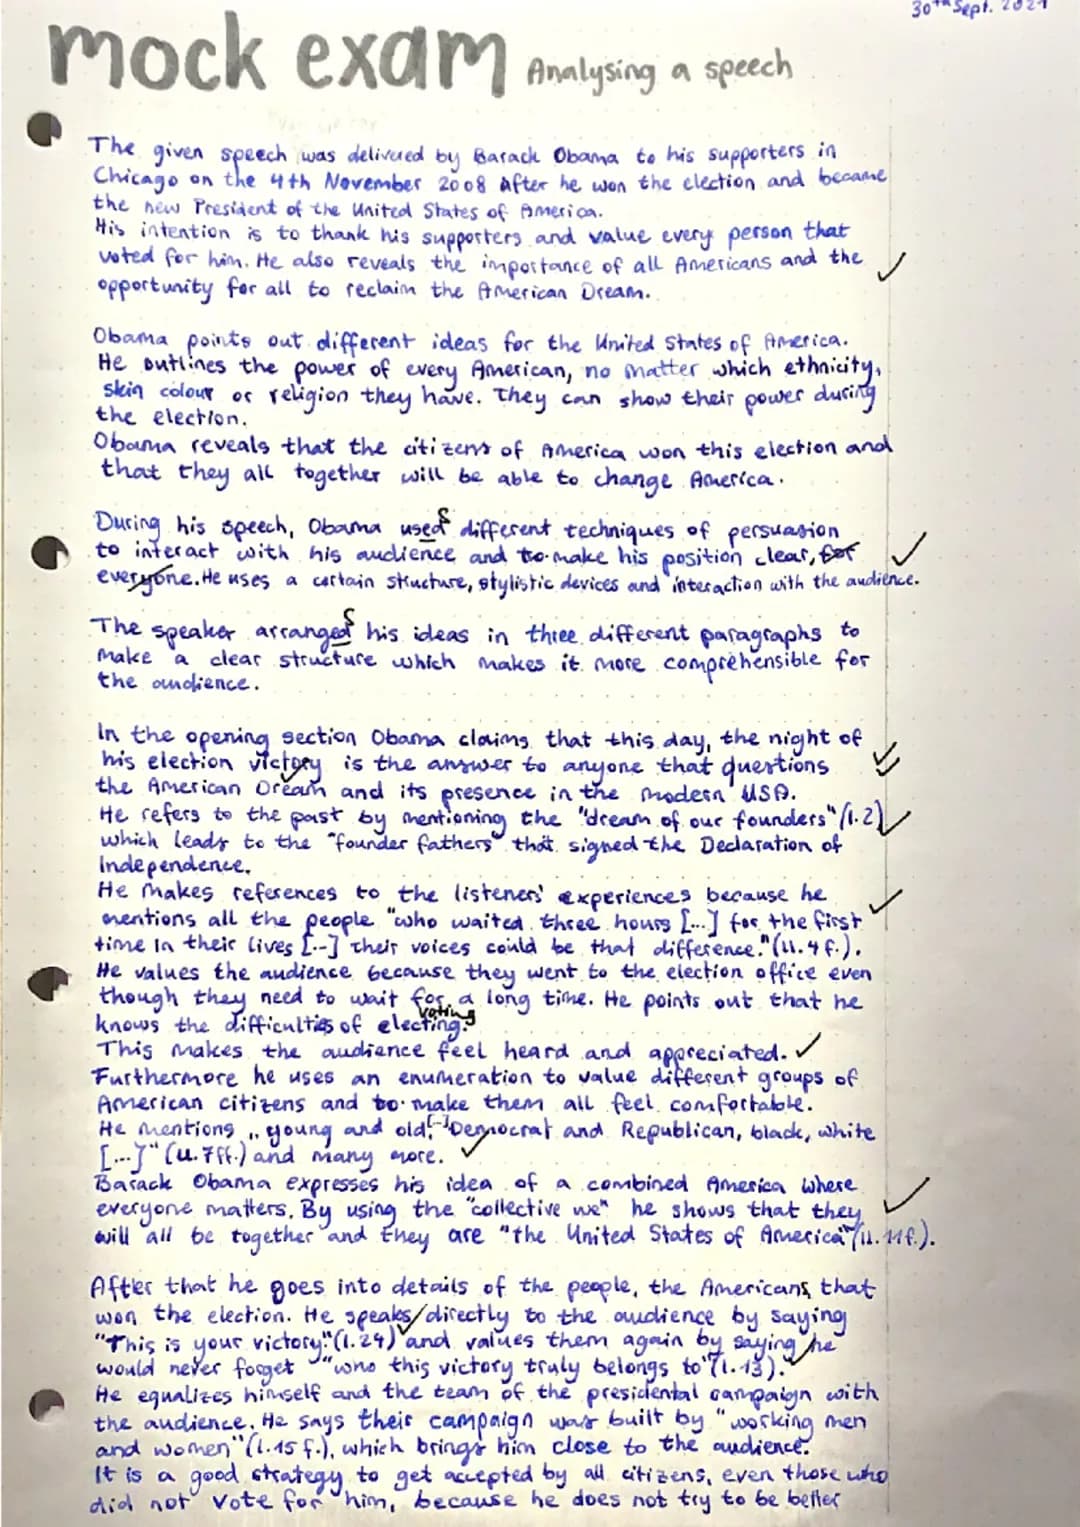 30th Sept. 2021
mock exam Analysing a speech
The given speech was delivered by Barack Obama to his supporters in
Chicago on the 4th November 2008 After he won the election and became
the new President of the United States of America.
His intention is to thank his supporters and value every person that
voted for him. He also reveals the importance of all Americans and the
opportunity for all to reclaim the American Dream.
Obama points out different ideas for the United States of America.
He outlines the power of every American, no matter which ethnicity,
skin colour or religion they have. They can show their power during
the election.
Obama reveals that the citizens of America won this election and
that they all together will be able to change America.
During his speech, Obama used s different techniques of persuasion
to interact with his audience and to make his position clear, for
everyone. He uses a certain structure, stylistic devices and interaction with the audience.
The speaker arranged s his ideas in three different paragraphs to
make a clear structure which makes it more comprehensible for
the audience.
In the opening section Obama claims that this day, the night of
his election victory is the answer to anyone that questions
the American Dream and its presence in the modern USA.
He refers to the past by mentioning the "dream of our founders" (l.2)
which leads to the "founder fathers" that signed the Declaration of
Independence.
He makes references to the listeners' experiences because he
mentions all the people "who waited three hours [...] for the first
time in their lives [...] their voices could be that difference." (ll.4f.).
He values the audience because they went to the election office even
though they need to wait for a long time. He points out that he
knows the difficulties of electing. voting
This makes the audience feel heard and appreciated.
Furthermore he uses an enumeration to value different groups of
American citizens and to make them all feel comfortable.
He mentions „young and old, [...] Democrat and Republican, black, white
[...]" (ll.7ff.) and many more.
Barack Obama expresses his idea of a combined America where
everyone matters. By using the "collective we" he shows that they
will all be together and they are "the United States of America" (ll.11f.).
After that he goes into details of the people, the Americans that
won the election. He speaks directly to the audience by saying
"This is your victory." (l.24) and values them again by saying he
would never forget "who this victory truly belongs to" (l.13).
He equalizes himself and the team of the presidental campaign with
the audience. He says their campaign was built by "working men
and women" (l.15f.), which brings him close to the audience.
It is a good strategy to get accepted by all citizens, even those who
did not vote for him, because he does not try to be better